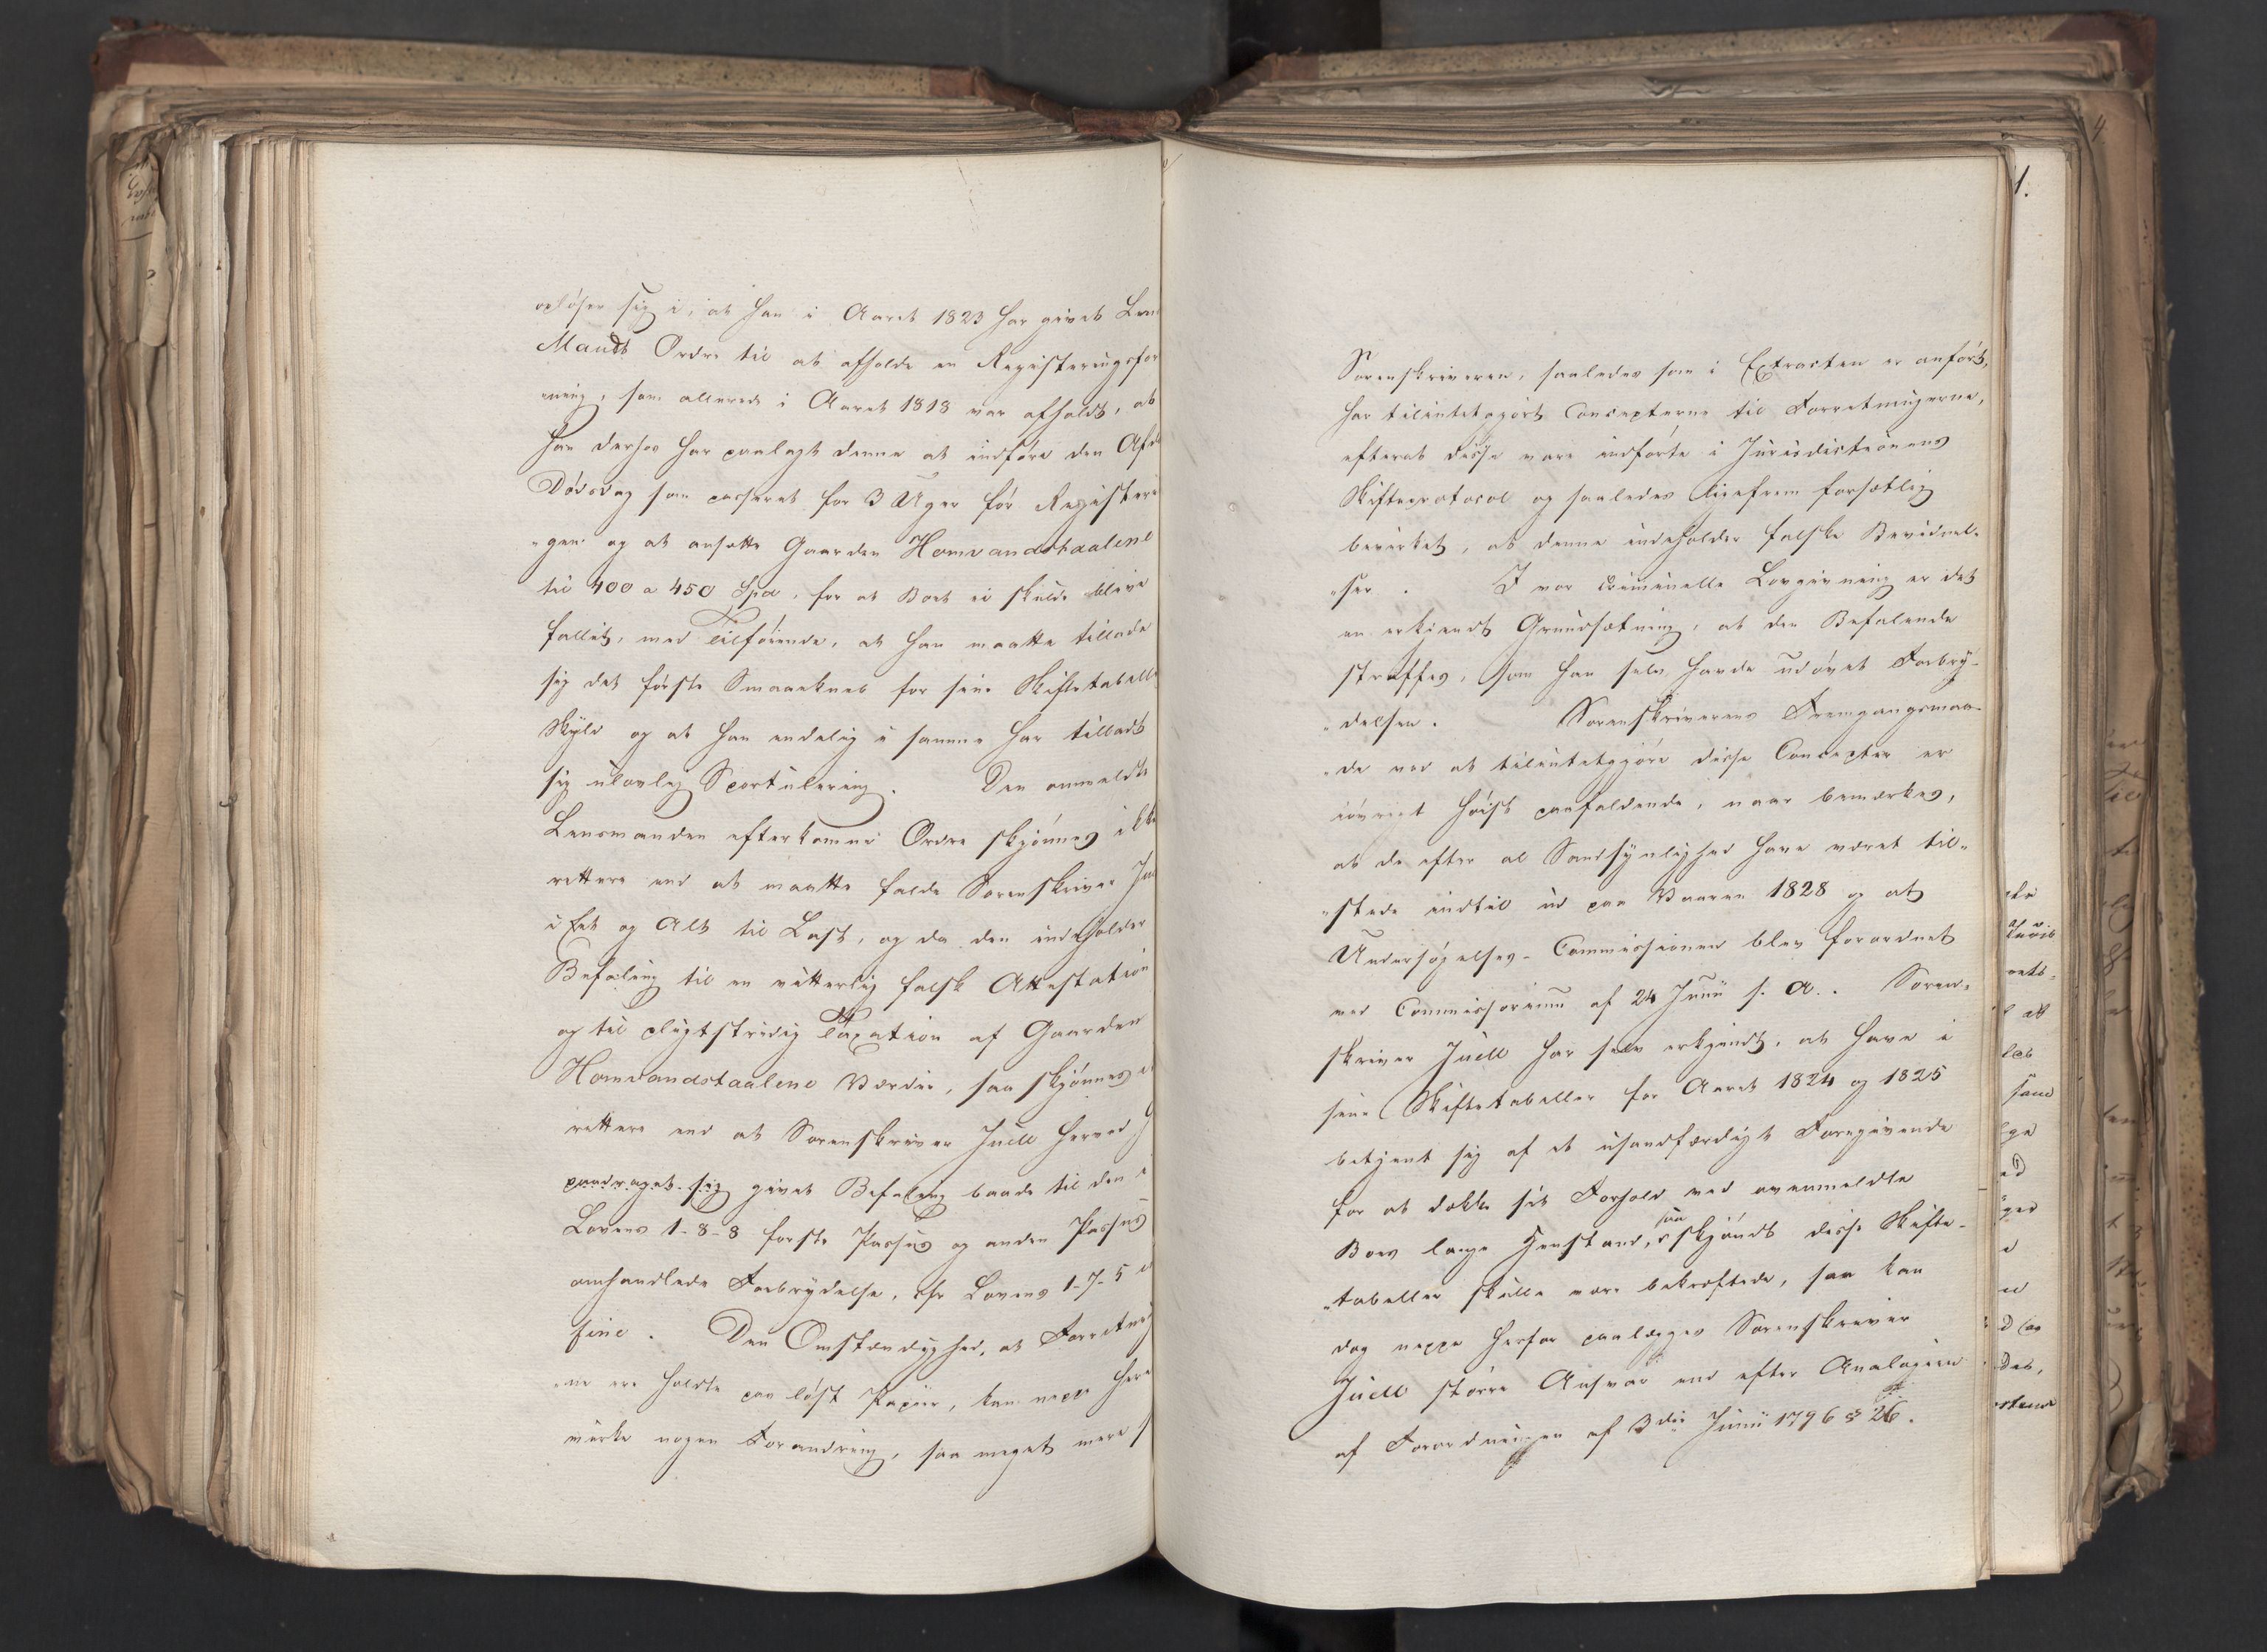 opløser sig i, at han i Aaret 1823 har givet Len
Mandt Ordre til at afholde en Registeringsfor
ning, som allerede i Aaret 1818 var afholdt, at
han derhos har paalagt denne at indføre den Afd
Dødsdag som passeret for 3 Uger før Registeri
"gen og at ansætte Gaarden Homvandstaalene
til 400 a 450 Spd, for at Boet ei skulde blive
fallit, med Tilføiende, at han maatte tillade
sig det første Smaaekneb for sine Skiftetabelle
Skyld og at han endelig i samme har tilladt
sig ulovlig Sportulering. Den anmeldte
Lensmanden efterkomne Ordre skjønnes ikke
rettere end at maatte falde Sorenskriver Ju
i Eet og Alt til Last, og da den indeholder
Befaling til en vitterlig falsk Attestation
og til pligtstridig Taxation af Gaarden
Homvandstaalene Værdie, saa skjønnes ei
rettere end at Sorenskriver Juell herved h
paadraget sig givet Befaling baade til den i
Lovens 1-8-8 første Passus og anden Passus
omhandlede Forbrydelse, cfr Lovens 1-7-5 i
fine. Den Omstændighed, at Forretning
"ne ere holdte paa løst Papiir, kan neppe heri
virke nogen Forandring, saa meget mere s
Sorenskriveren, saaledes som i Extracten er anført,
har tilintetgjort Concepterne til Forretningerne,
efterat disse vare indførte i Jurisdictionens
Skifteprotocol og saaledes ligefrem forsætlig
bevirket, at denne indeholder falske Bevidnel-
"ser. I vor criminelle Lovgivning er det
en erkjendt Grundsætning, at den Befalende
straffes, som han selv havde udøvet Forbry-
"delsen. Sorenskriverens Fremgangsmaa-
"de ved at tilintetgjøre disse Concepter er
iøvrigt høist paafaldende, naar bemærkes,
at de efter al Sandsynlighed have været til-
"stede indtil ud paa Vaaren 1828 og at
Undersøgelses-Commissionen blev forordnet
ved Commissorium af 24 Junii s. A. Soren-
skriver Juell har selv erkjendt, at have i
sine Skiftetabeller for Aaret 1824 og 1825
betjent sig af et usandfærdigt Foregivende
for at dække sit Forhold ved ovenmeldte
Boes lange Henstand, saa skjøndt disse Skifte-
"tabeller skulle være bekræftede, saa kan
dog neppe herfor paalægges Sorenskriver
Juell større Ansvar end efter Analogien
af Forordningen af 3die Junii 1796 § 26.